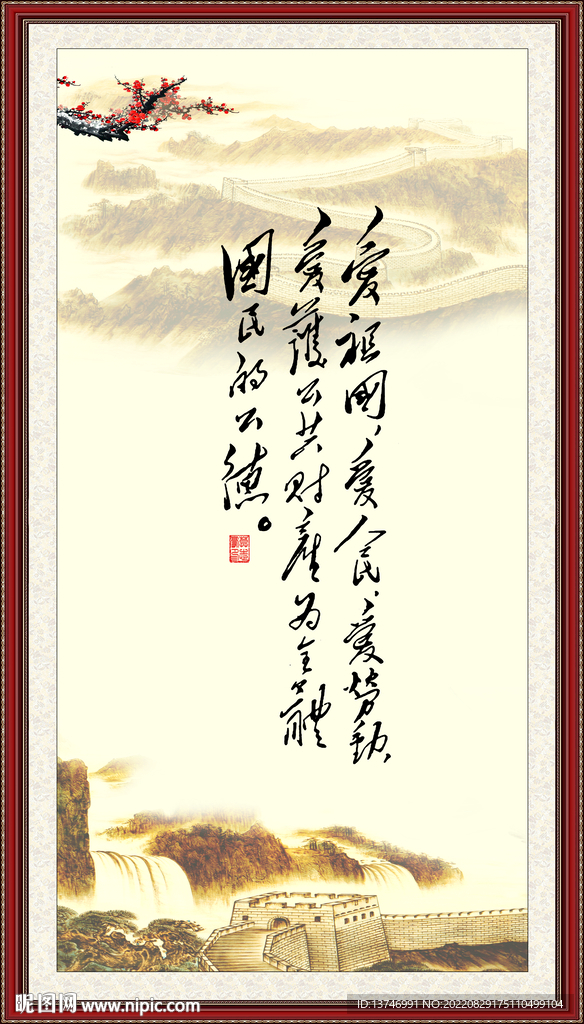 愛祖國、愛人民、愛勞動、
愛護公共財產為全體
國民的公德。
昵图网 www.nipic.com
ID:13746991 NO:20220829175110499104